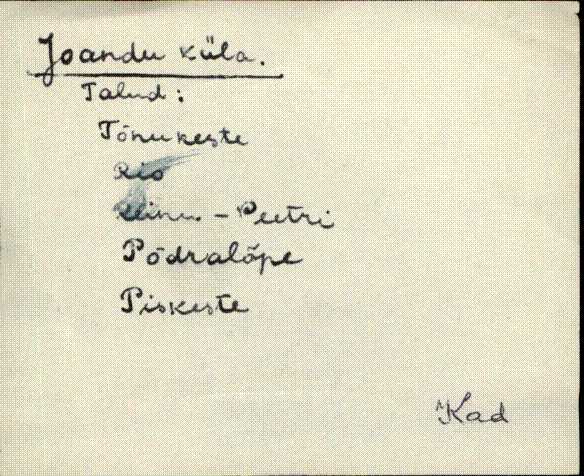 Joandu küla.
Talud:
Tõnukeste
Rio
- Peetri
Põdralõpe
Piskeste
Kad